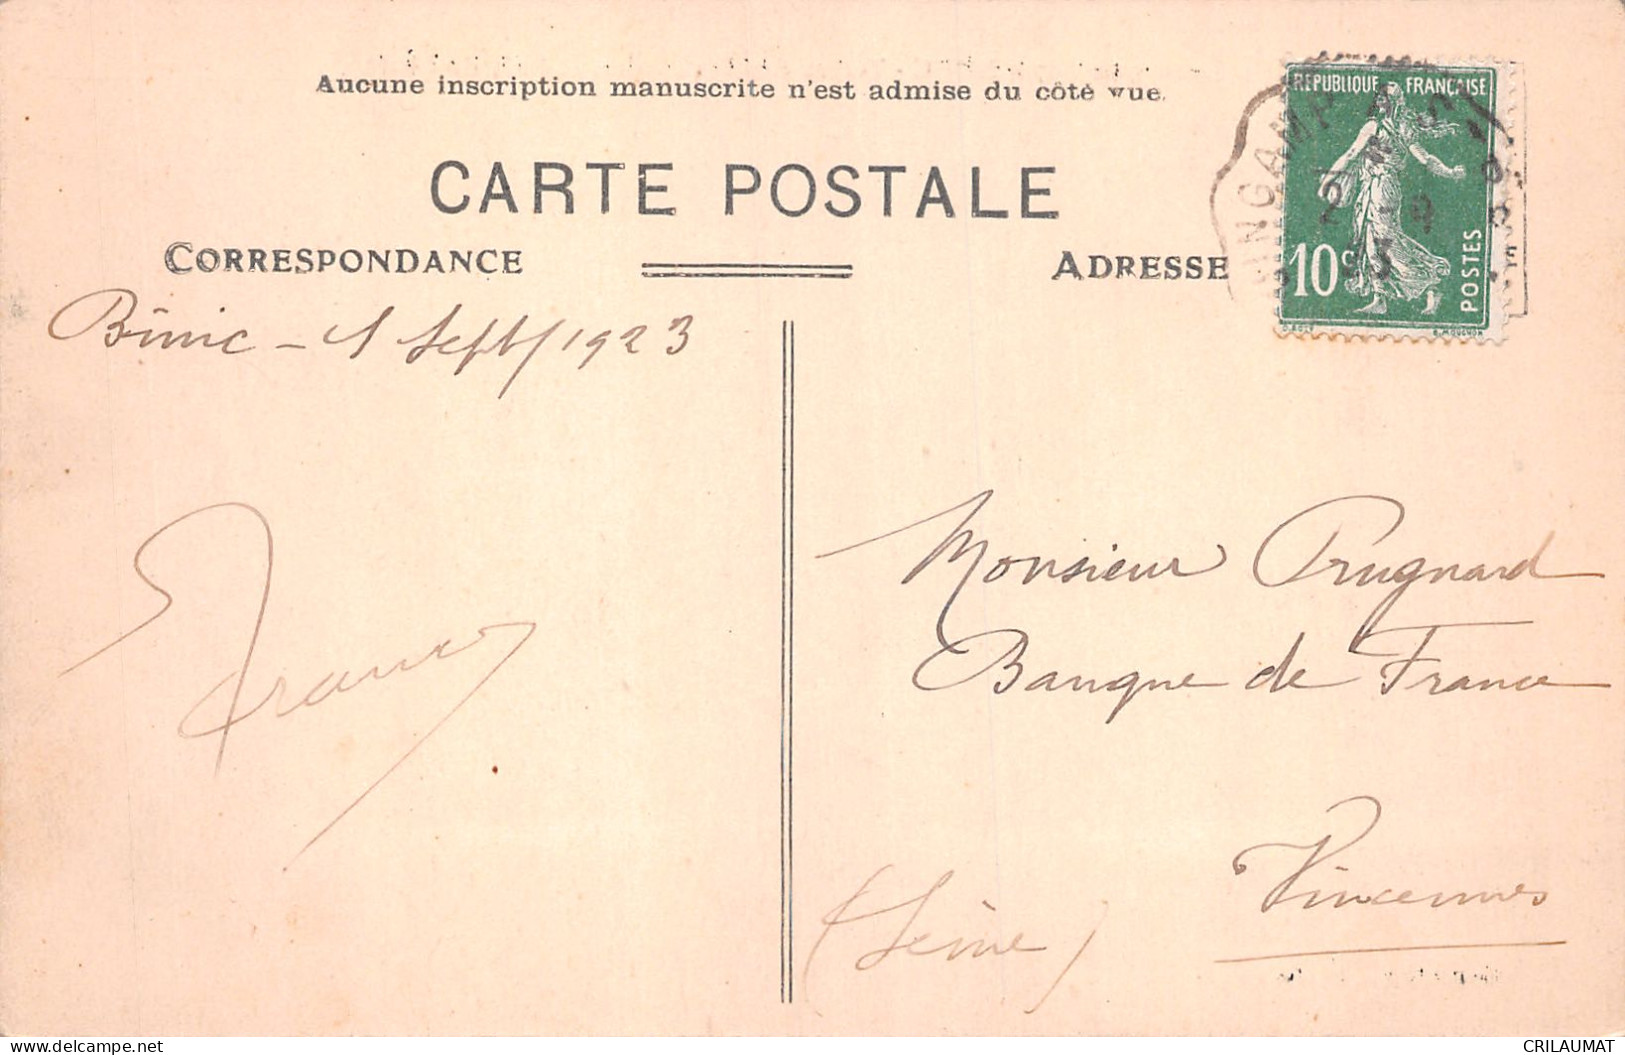 Aucune inscription manuscrite n'est admise du côté vue.
CARTE POSTALE
CORRESPONDANCE
ADRESSE
REPUBLIQUE FRANÇAISE
10c
POSTES
Binic - 1 Sept 1923
Monsieur Prugnard
Banque de France
Vincennes
(Seine)
delcampe.net
CRILAUMAT